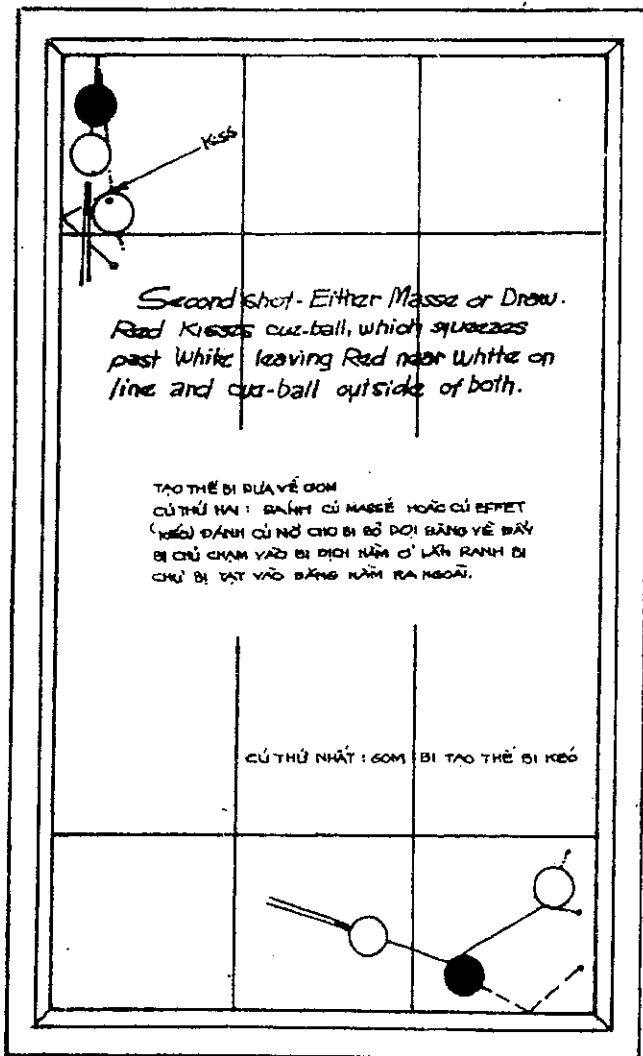 Kiss
Second shot - Either Masse or Draw.
Red Kisses cue-ball, which squeezes
past White leaving Red near White on
line and cue-ball outside of both.
TẠO THẾ BI ĐƯA VỀ GOM
CÚ THỨ HAI : ĐÁNH CÚ MASSÉ HOẶC CÚ EFFET
(KÉO) ĐÁNH CÚ NỞ CHO BI ĐỎ DỘI BĂNG VỀ ĐẨY
BI CHỦ CHẠM VÀO BI ĐỊCH NẰM Ở LẰN RANH BI
CHỦ BỊ TẠT VÀO BĂNG NẰM RA NGOÀI.
CÚ THỨ NHẤT : GOM BI TẠO THẾ BI KÉO